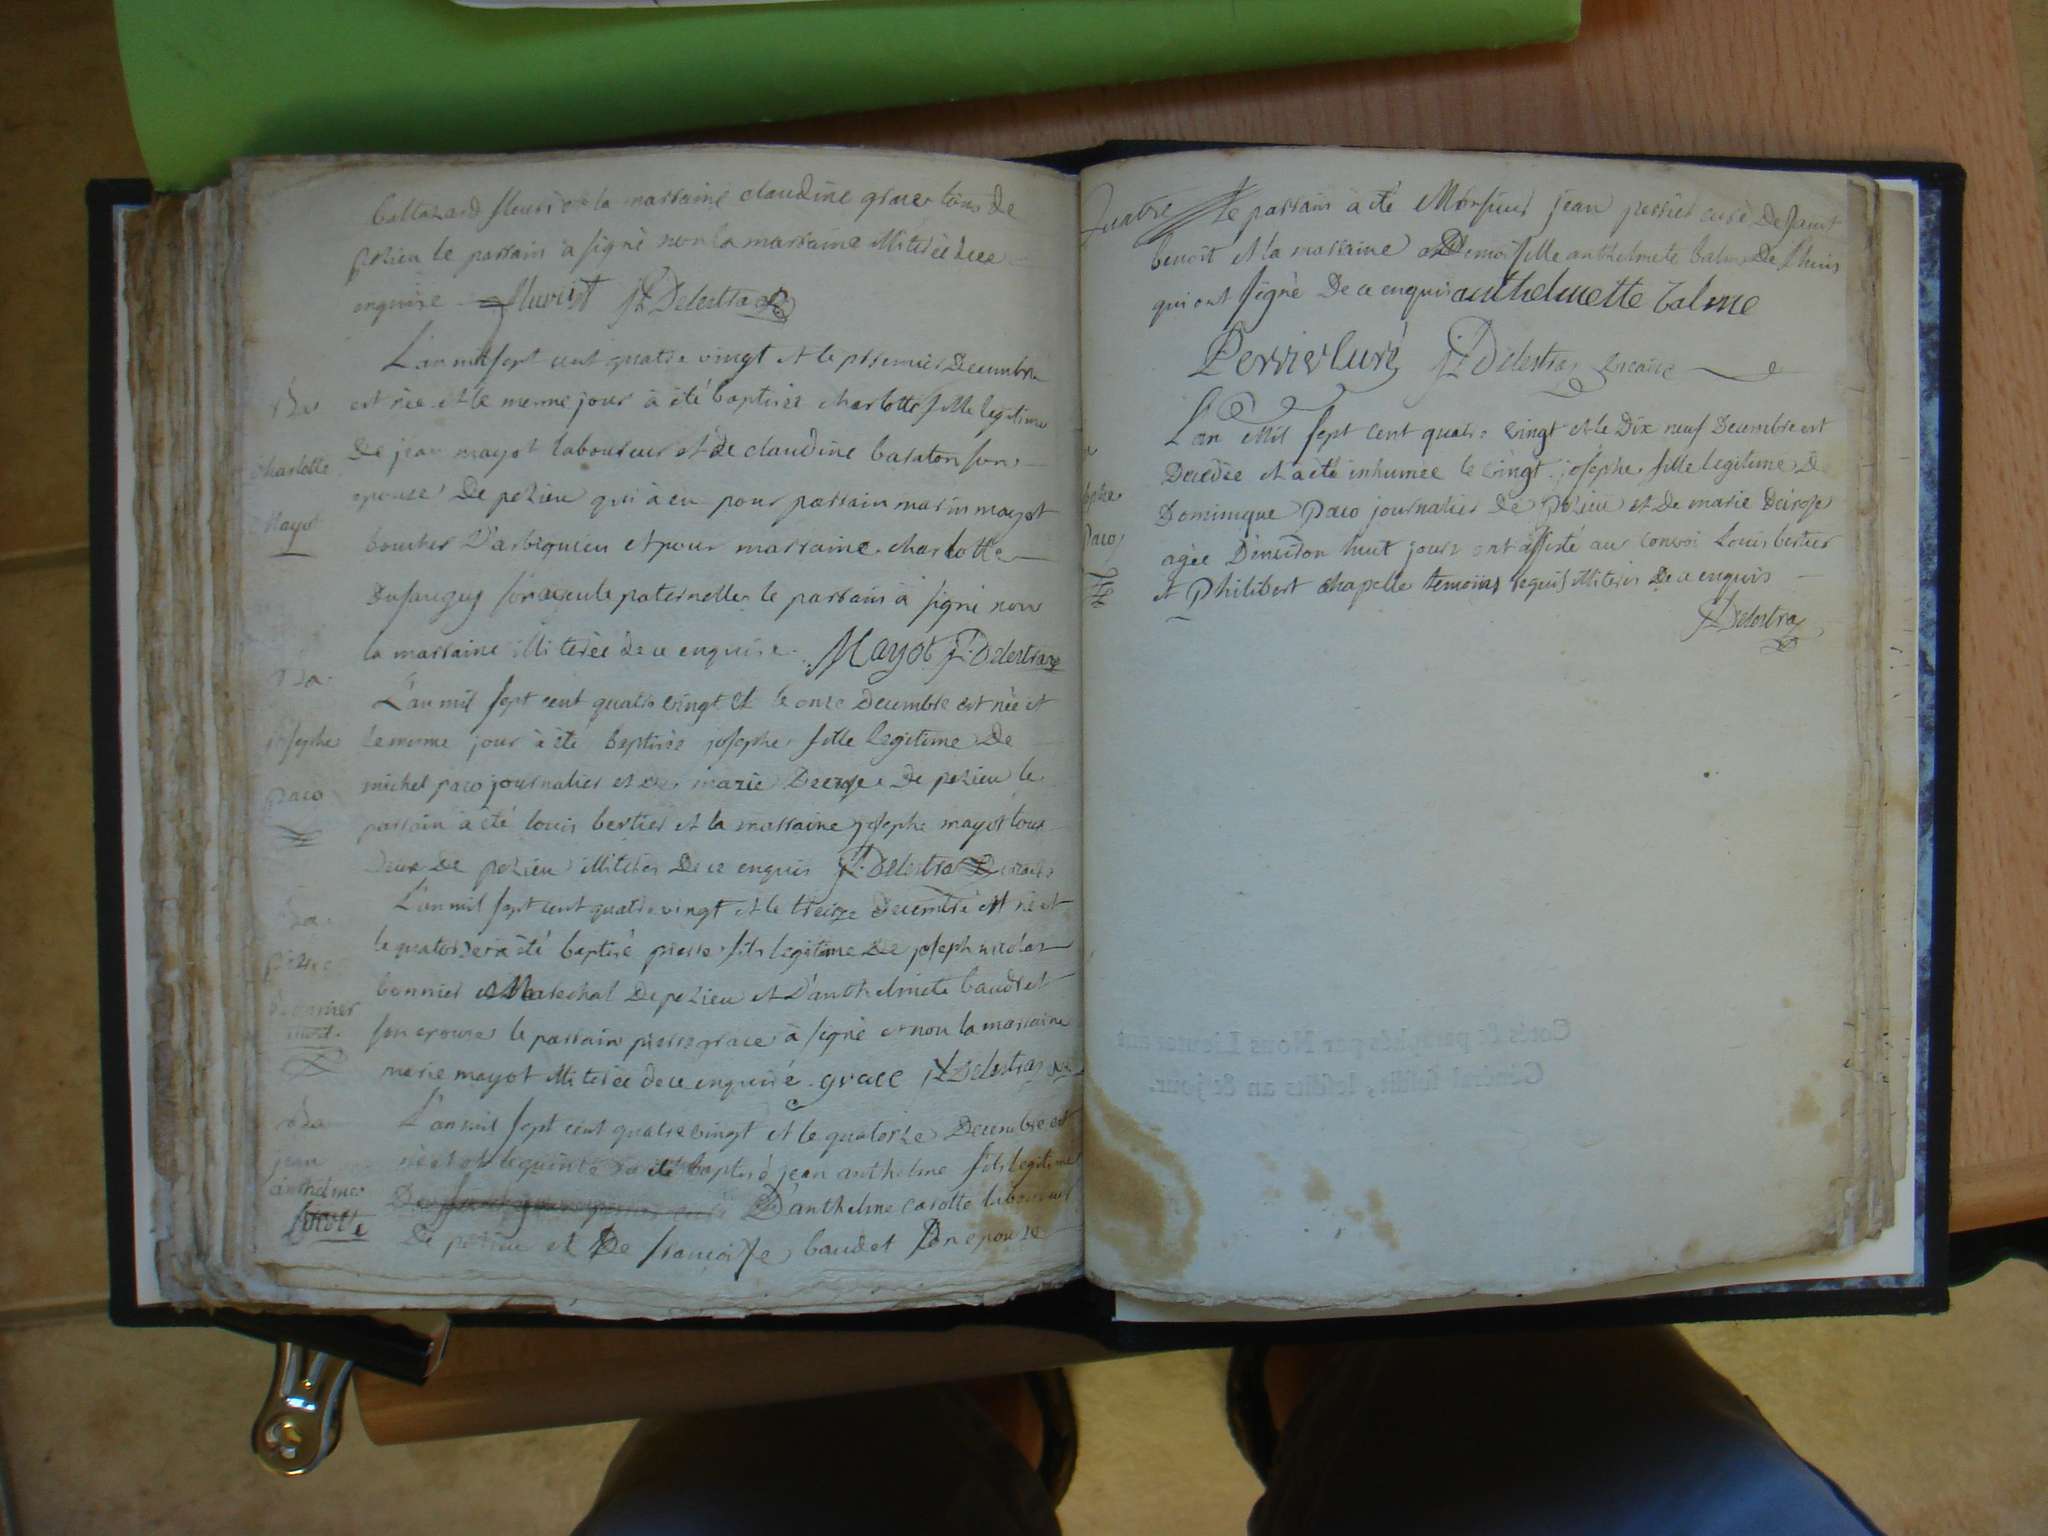 baltazard fleuri et la marraine claudine grace tous de
pezieu le parrain a signé non la marraine illiterée de ce
enquise fleuriet Delestra
L'an mil sept cent quatre vingt et le premier Decembre
est née et le meme jour à été baptisée charlotte fille legitime
De jean mayot laboureur et de claudine baraton son
epouse De pezieu qui à eu pour parrain marin mayot
boucher D'arbignieu et pour marraine charlotte
son ayeule paternelle le parrain à signé non
la marraine illiterée de ce enquise. Mayot Delestra
charlotte
Mayot
L'an mil sept cent quatre vingt et le onze Decembre est née et
le meme jour à été baptisée josephe fille legitime De
michel paco journalier et de marie Decroze De pezieu le
parrain à été louis bertier et la marraine josephe mayot tous
Deux De pezieu illiterés De ce enquis Delestra vicaire
josephe
paco
L'an mil sept cent quatre vingt et le treize decembre est né et
le quatorze à été baptisé pierre fils legitime De joseph nicolas
bonnier Marechal De pezieu et D'anthelmete baudet
son epouse le parrain pierre grace à signé et non la marraine
marie mayot illiterée de ce enquise. grace Delestra
pierre
bonnier
L'an mil sept cent quatre vingt et le quatorze Decembre est
né et le quinze à été baptisé jean anthelme fils legitime
D'anthelme carotte laboureur
De pezieu et De françoise baudet son epouse
jean
anthelme
Quatre le parrain à été Monsieur jean perrier curé De saint
benoit et la marraine Demoiselle anthelmete balme De lhuis
qui ont signé De ce enquis anthelmette balme
Perrier Curé Delestra vicaire
L'an Mil sept cent quatre vingt et le Dix neuf Decembre est
Decedée et a été inhumée le vingt josephe fille legitime De
Dominique Paco journalier De Pezieu et De marie Decroze
agée D'environ huit jours ont assisté au convoi Louis bertier
et Philibert chapelle temoins requis illiterés De ce enquis
Delestra
Paco
Cotés & paraphés par Nous Lieutenant
Général susdit, lesdits an & jour.